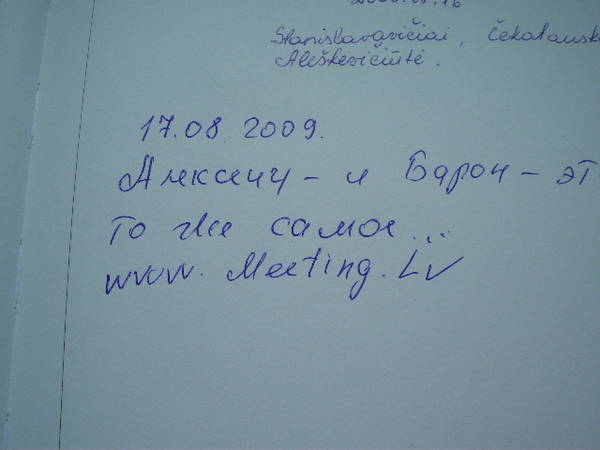 Stanislavavičiai, Čekatausk
Aleškevičiūtė.
17.08 2009.
Алексиц - и Барон - эт
то же самое...
www.Meeting.LV